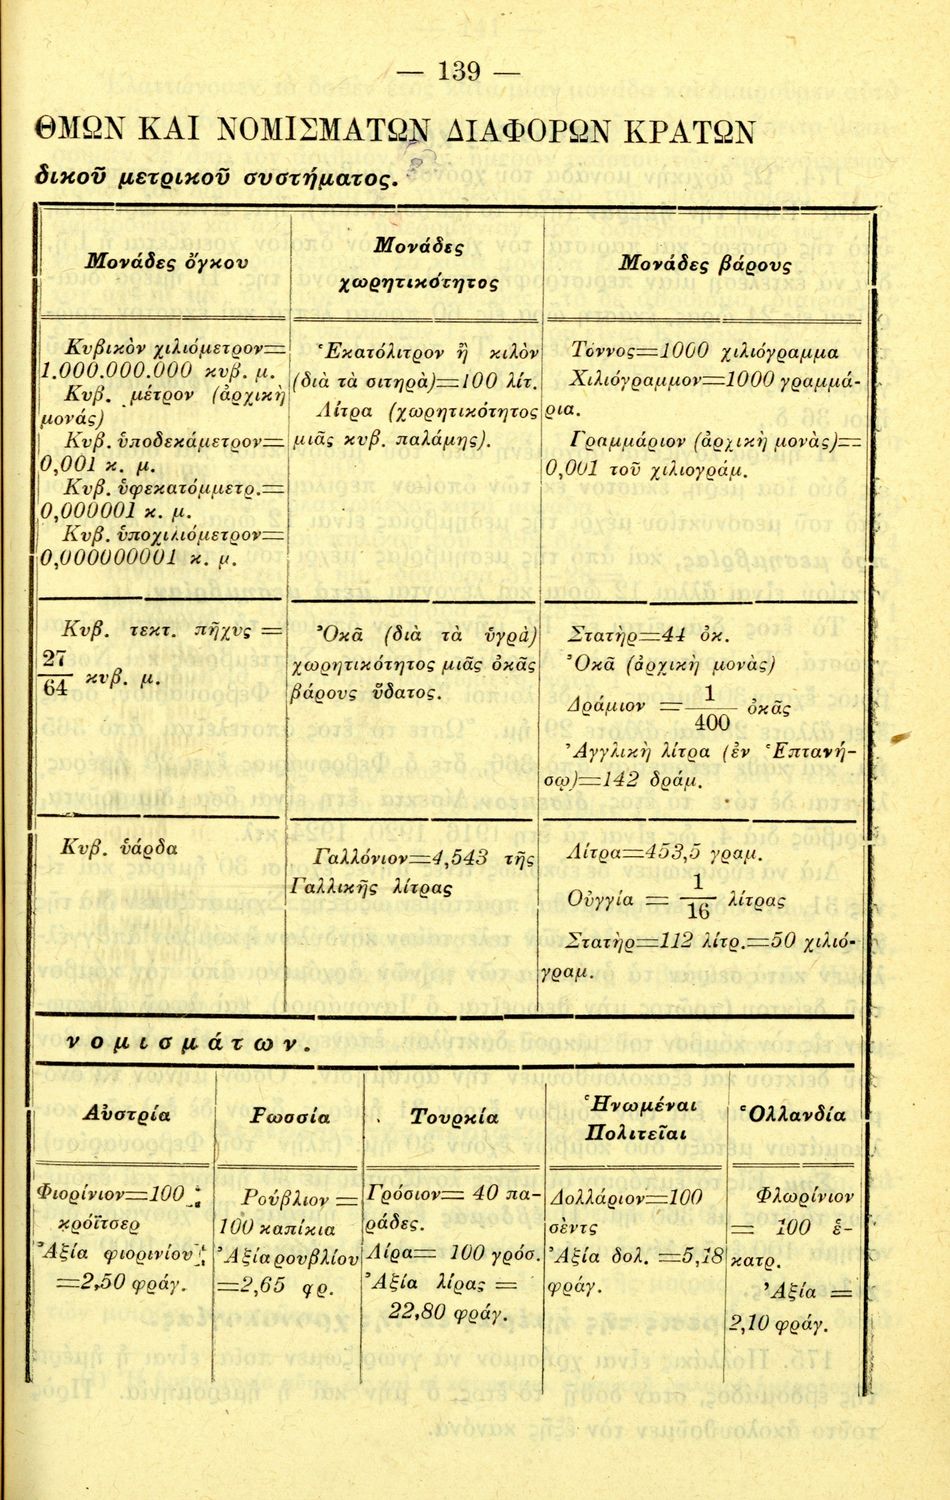 — 139 —
ΘΜΩΝ ΚΑΙ ΝΟΜΙΣΜΑΤΩΝ ΔΙΑΦΟΡΩΝ ΚΡΑΤΩΝ
δικοῦ μετρικοῦ συστήματος.
Μονάδες ὄγκου
Μονάδες
χωρητικότητος
Μονάδες βάρους
Κυβικὸν χιλιόμετρον=
1.000.000.000 κυβ. μ.
Κυβ. μέτρον (ἀρχικὴ
μονάς)
Κυβ. ὑποδεκάμετρον=
0,001 κ. μ.
Κυβ. ὑφεκατόμμετρ.=
0,000001 κ. μ.
Κυβ. ὑποχιλιόμετρον=
0,000000001 κ. μ.
Ἑκατόλιτρον ἢ κιλὸν
(διὰ τὰ σιτηρὰ)=100 λίτ.
Λίτρα (χωρητικότητος
μιᾶς κυβ. παλάμης).
Τόννος=1000 χιλιόγραμμα
Χιλιόγραμμον=1000 γραμμά-
ρια.
Γραμμάριον (ἀρχικὴ μονὰς)=
0,001 τοῦ χιλιογράμ.
Κυβ. τεκτ. πῆχυς =
27
64 κυβ. μ.
Ὀκᾶ (διὰ τὰ ὑγρὰ)
χωρητικότητος μιᾶς ὀκᾶς
βάρους ὕδατος.
Στατήρ=44 ὀκ.
Ὀκᾶ (ἀρχικὴ μονὰς)
Δράμιον = 1
400 ὀκᾶς
Ἀγγλικὴ λίτρα (ἐν Ἑπτανή-
σῳ)=142 δράμ.
Κυβ. ὑάρδα
Γαλλόνιον=4,543 τῆς
Γαλλικῆς λίτρας
Λίτρα=453,5 γραμ.
Οὐγγία = 1
16 λίτρας
Στατὴρ=112 λίτρ.=50 χιλιό-
γραμ.
νομισμάτων.
Αὐστρία
Ρωσσία
Τουρκία
Ἡνωμέναι
Πολιτεῖαι
Ὁλλανδία
Φιορίνιον=100
κρόϊτσερ
Ἀξία φιορινίου
=2,50 φράγ.
Ρούβλιον =
100 καπίκια
Ἀξία ρουβλίου
=2,65 φρ.
Γρόσιον= 40 πα-
ράδες.
Λίρα= 100 γρόσ.
Ἀξία λίρας =
22,80 φράγ.
Δολλάριον=100
σὲντς
Ἀξία δολ. =5,18
φράγ.
Φλωρίνιον
= 100 ἑ-
κατρ.
Ἀξία =
2,10 φράγ.